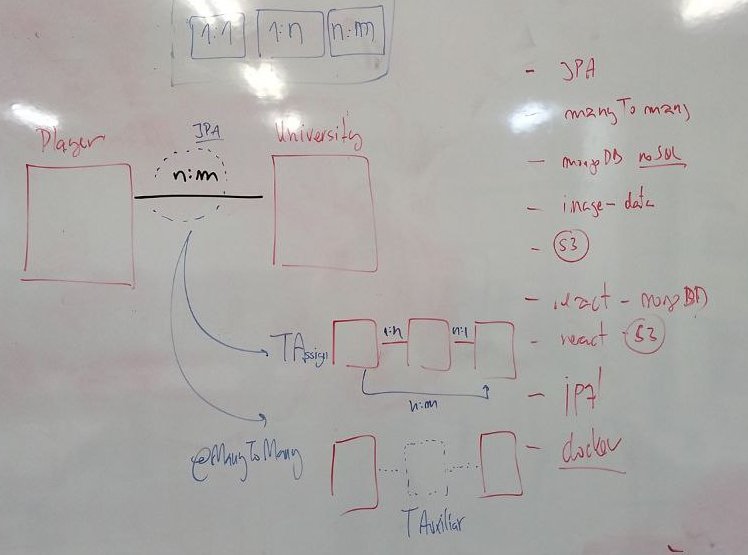 1:1 1:n n:m
Player
JPA
University
n:m
TAssig
1:n
n:1
n:m
@ManyToMany
TAuxiliar
- JPA
- manyTo many
- mongoDB noSQL
- image-data
- S3
- react - mongoDB
- react S3
- docker